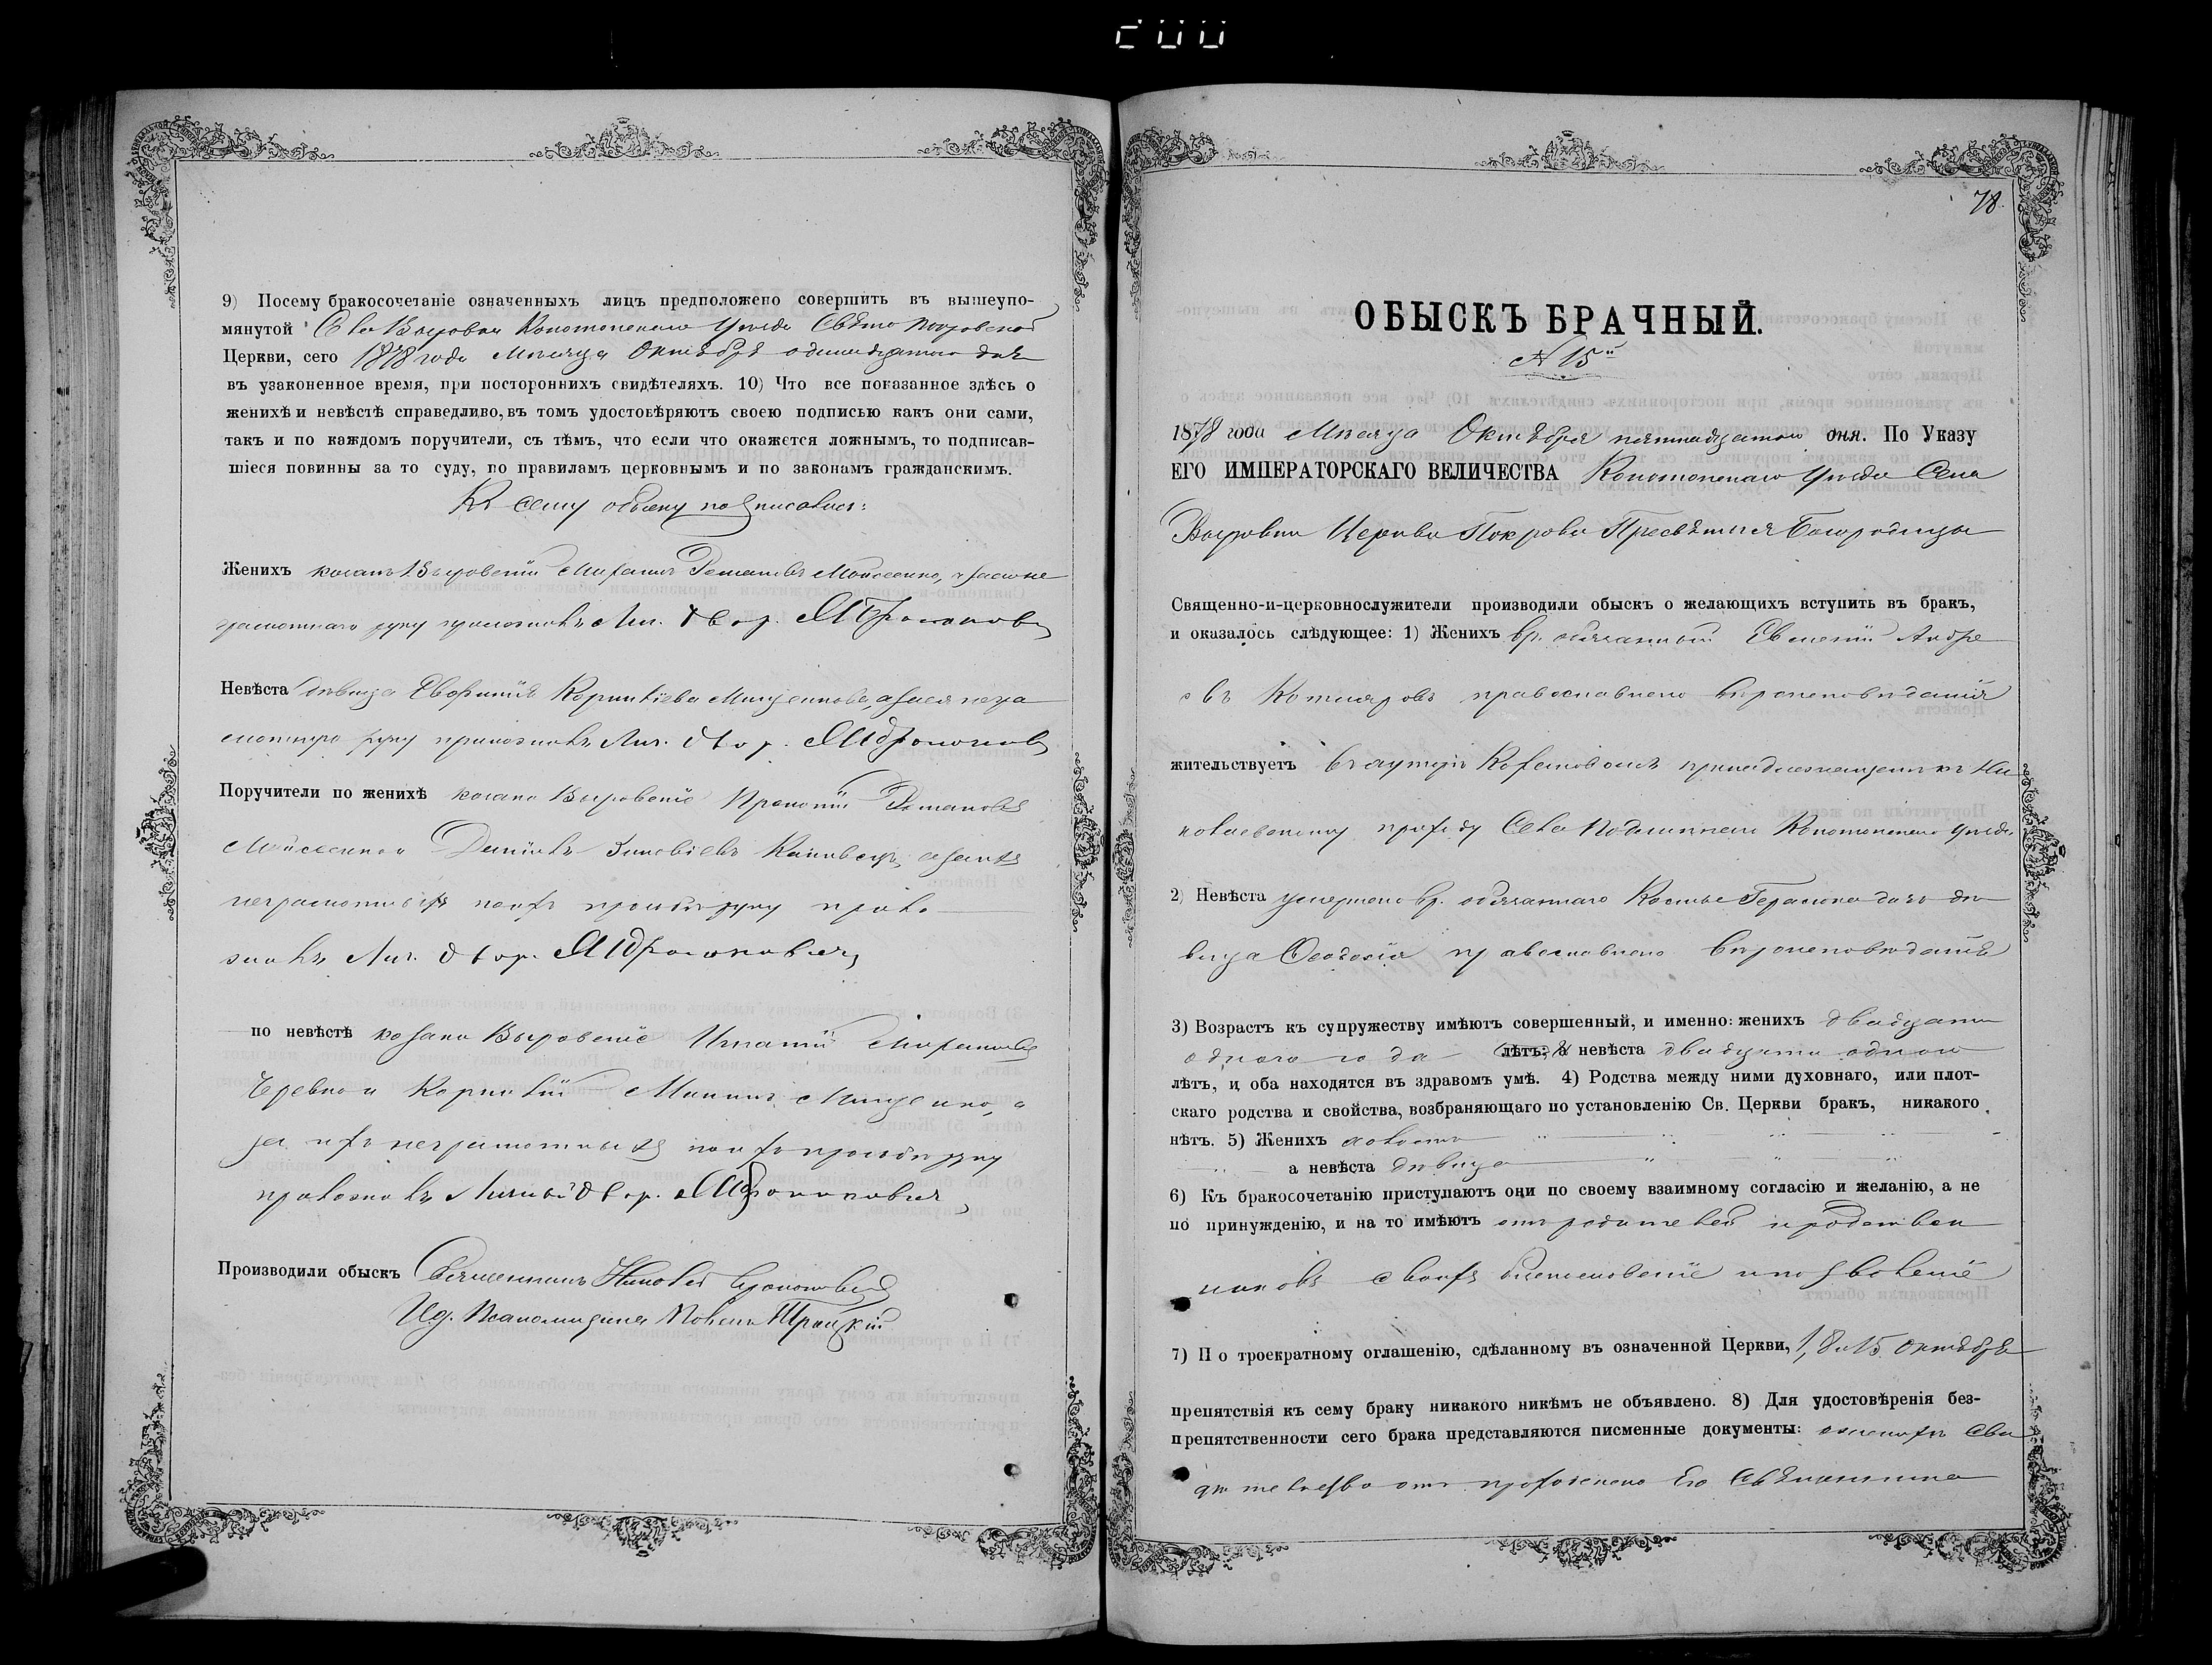 200
9) Посему бракосочетаніе означенныхъ лицъ предположено совершить въ вышеупо-
мянутой Села Выровки Конотопскаго уѣзда Свято Покровской
Церкви, сего 1878 года Мѣсяца Октября одинадцатаго дня
въ узаконенное время, при постороннихъ свидѣтеляхъ. 10) Что все показанное здѣсь о
женихѣ и невѣстѣ справедливо, въ томъ удостовѣряютъ своею подписью какъ они сами,
такъ и по каждомъ поручители, съ тѣмъ, что если что окажется ложнымъ, то подписав-
шіеся повинны за то суду, по правиламъ церковнымъ и по законамъ гражданскимъ.
Къ сему обыску подписались:
Женихъ козакъ Выровскій Романовъ Моисеенко, а за его не
грамотнаго руку приложилъ Лич. двор.
Невѣста дѣвица Корнилиева Мищенкова, а за ея негра
мотную руку приложилъ Лич. двор.
Поручители по женихѣ козаки Выровскіе Прокопій Романовъ
Моисеенко и Даніилъ Зиновіевъ а за нихъ
неграмотныхъ по ихъ прозьбѣ руку прило
жилъ Лич. двор.
по невѣстѣ козаки Выровскіе Игнатій
и Корнилій Мининъ Мищенко, а
за ихъ неграмотныхъ по ихъ прозьбѣ руку
приложилъ Личный двор.
Производили обыскъ Священникъ Николай
И.д. Псаломщика Троицкій
78.
ОБЫСКЪ БРАЧНЫЙ.
№ 15й
1878 года Мѣсяца Октября пятнадцатаго дня. По Указу
ЕГО ИМПЕРАТОРСКАГО ВЕЛИЧЕСТВА Конотопскаго уѣзда Села
Выровки Церкви Покрова Пресвятыя Богородицы
Священно-и-церковнослужители производили обыскъ о желающихъ вступить въ бракъ,
и оказалось слѣдующее: 1) Женихъ вр. обязанный Евгеній Андре
евъ Котляровъ православнаго вѣроисповѣданія
жительствуетъ въ хуторѣ принадлежащемъ къ Ни
колаевскому приходу Села Подлипнаго Конотопскаго уѣзда
2) Невѣста умершаго вр. обязаннаго Косьмы Герасимова дочь дѣ
вица Ѳеодосія православнаго вѣроисповѣданія
3) Возрастъ къ супружеству имѣютъ совершенный, и именно: женихъ двадцати
одного года лѣтъ; а невѣста двадцати одного
лѣтъ, и оба находятся въ здравомъ умѣ. 4) Родства между ними духовнаго, или плот-
скаго родства и свойства, возбраняющаго по установленію Св. Церкви бракъ, никакого
нѣтъ. 5) Женихъ холостъ
а невѣста дѣвица
6) Къ бракосочетанію приступаютъ они по своему взаимному согласію и желанію, а не
по принужденію, и на то имѣютъ отъ родителей и родствен
никовъ своихъ благословеніе и позволеніе
7) По троекратному оглашенію, сдѣланному въ означенной Церкви, 1, 8 и 15 октября
препятствія къ сему браку никакого никѣмъ не объявлено. 8) Для удостовѣренія без-
препятственности сего брака представляются писменные документы: о женихѣ сви
дѣтельство отъ приходскаго его Священника